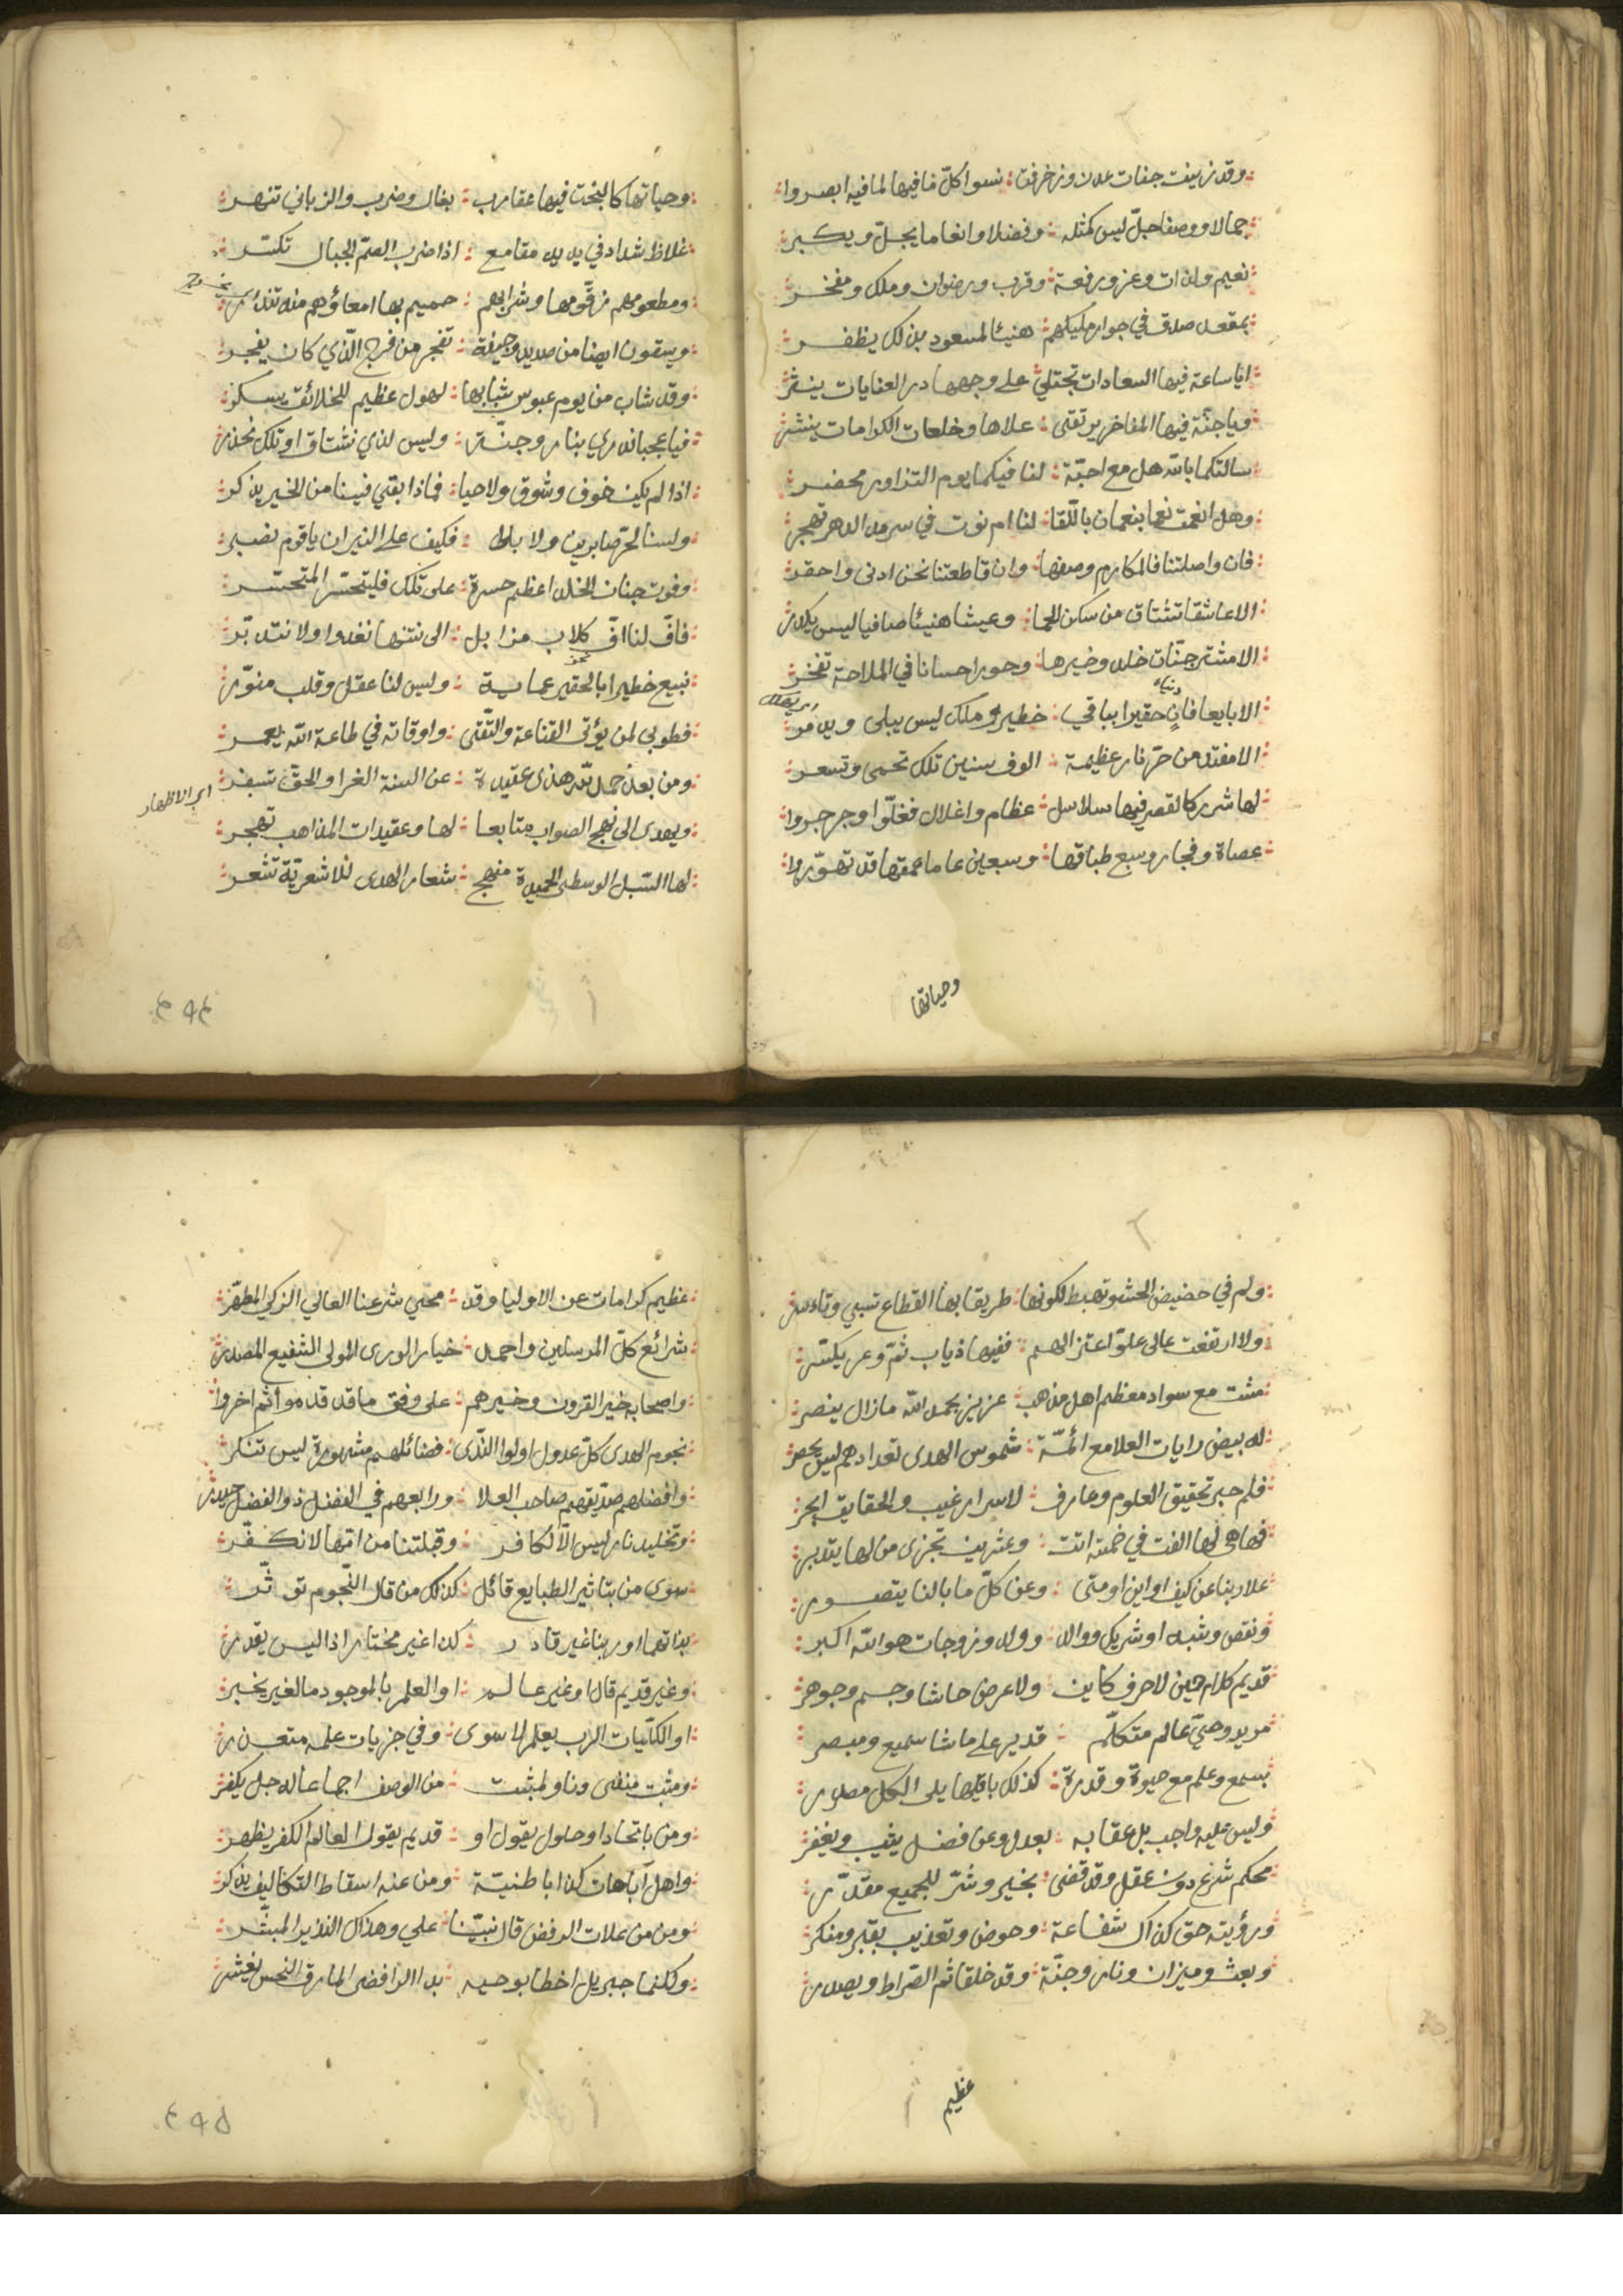 وقد زينت جنات عدن وزخرفت : نسوا كلّ ما فيها لما فيه ابصروا
جمالا ووصفا جلّ ليس كمثله : وفضلا وانعاما يجلّ ويكبر
نعيم ولذات وعز ورفعة : وقرب ورضوان وملك ومفخر
بمقعد صدق في جوار مليكهم : هنيئا لمسعود بذلك يظفر
ايا ساعة فيها السعادات تجتلي : على وجهها در العنايات ينثر
ويا جنّة فيها المفاخر يرتقى : علاها وخلعات الكرامات ينشر
سالتكما بالله هل مع احبّة : لنا فيكما يوم التزاور محضر
وهل انعمت نعما بنعمان باللّقا : لنا ام نوت في سرمد الدهر تهجر
فان واصلتنا فالمكارم وصفها : وان قاطعتنا نحن ادنى واحقر
الا عاشقا تشتاق من سكن الحما : وعيشا هنيئا صافيا ليس يكدر
الا مشتر جنّات خلد وخيرها : وحورا حسانا في الملاحة تفخر
الا بايعا فانٍ حقيرا بباقي : خطير وملك ليس يبلى ويدمر
دنياه
اي يهلك
الا مفتد من حرّ نار عظيمة : الوف سنين تلك تحمى وتسعر
لها شرر كالقصر فيها سلاسل : عظام واغلال فغلّوا وجرجروا
عصاة وفجار وسبع طباقها : وسبعين عاما عمقها قد تهوّروا
وحياتها
وحياتها كالبخت فيها عقارب : بغال وضرب والزباني تنهر
غلاظ شداد في يديه مقامع : اذا ضرب الصمّ الجبال تكسّر
ومطعومهم زقّومها وشرابهم : حميم بها امعاؤهم منه تندر
ويسقون ايضا من صديد وجيفة : تفجر من فرج الّذي كان يفجر
وقد شاب من يوم عبوس شبابها : لهول عظيم للخلائق يسكر
فيا عجبا ندري بنار وجنّة : وليس لذي نشتاق او تلك نحذر
اذا لم يكن خوف وشوق ولا حيا : فماذا بقي فينا من الخير يذكر
ولسنا لحرّ صابرين ولا بلى : فكيف على النيران يا قوم نصبر
وفوت جنان الخلد اعظم حسرة : على تلك فليتحسّر المتحسّر
فافّ لنا افّ كلاب مزابل : الى نتنها نغدوا ولا نتدبّر
نبيع خطيرا بالحقير عماية : وليس لنا عقل وقلب منوّر
فطوبى لمن يؤتى القناعة والتّقى : واوقاته في طاعة الله يعمر
ومن بعد حمد لله هذى عقيدة : عن السنة الغرا والحقّ تسفر
اي الاظهار
ويهدى الى نهج الصواب متابعا : لها وعقيدات المذاهب تهجر
لها السّبل الوسطى الحميدة منهج : شعار الهدى للاشعريّة تشعر
٤٩٤
ولم في حضيض الحشو تهبط لكونها : طريقا بها القطاع تسبي وتاسر
ولا ارتفعت عالى علوّ اعتزالهم : ففيها ذياب ثمّ وعر يكسّر
مشت مع سواد معظم اهل مذهب : عزيز بحمد الله ما زال ينصر
له بيض رايات العلا مع ائمّة : شموس الهدى تعدادهم ليس يحصر
فلم حبر تحقيق العلوم وعارف : لاسرار غيب والحقايق ابحر
فها هي لها الفت في خمسة اتت : وعشرين تجزى من لها يتدبر
علا ربنا عن كيف او اين او متى : وعن كلّ ما بالنا يتصور
ونقص وشبه او شريك ووالد : وولد وزوجات هو الله اكبر
قديم كلام حين لا حرف كاين : ولا عرض حاشا وجسم وجوهر
مريد وحيّ عالم متكلّم : قدير على ما شا سميع ومبصر
بسمع وعلم مع حيوة وقدرة : كذلك باقيها يلى الكل مصدر
وليس عليه واجب بل عقابه : بعدل وعن فضل يثيب ويغفر
محكم شرع دون عقل وقد قضى : بخير وشرّ للجميع مقدّر
ورؤيته حق كذاك شفاعة : وحوض وتعذيب بقبر ومنكر
وبعث وميزان ونار وجنّة : وقد خلقا ثم الصّراط ويصدر
عظيم
عظيم كرامات عن الاوليا وقد : محى شرعنا العالي الزكيّ المطهّر
شرائع كلّ المرسلين واحمد : خيار الورى المولى الشفيع المصدر
واصحابه خير القرون وخيرهم : على وفق ما قد قدموا ثم اخروا
نجوم الهدى كلّ عدول اولوا النّدى : فضائلهم مشهورة ليس تنكر
وافضلهم صدّيقهم صاحب العلا : ورابعهم في الفضل ذو الفضل حيدر
وتخليد نار ليس الّا لكافر : وقبلتنا من امّها لا نكفّر
سوى من بتاثير الطبايع قائل : كذلك من قال النّجوم تؤثّر
بذاتها او ربنا غير قادر : كذا غير مختار اذا ليس يقدر
وغير قديم قال او غير عالم : او العلم بالموجود ما لغير يخبر
او الكلّيات الرب يعلم لا سوى : وفي جزيات علمه متعذر
ومثبت منفى وناو لمثبت : من الوصف اجماعا له جل يكفر
ومن باتحاد او حلول يقول او : قديم يقول العالم الكفر يظهر
واهل اباحات كذا باطنيّة : ومن عنه اسقاط التكاليف يذكر
ومن من غلات الرفض قال نبيّنا : علي وهذاك النذير المبشّر
ولكنما جبريل اخطا بوحيه : بدا الرافضى المارق النحس يغشر
٤٩٥